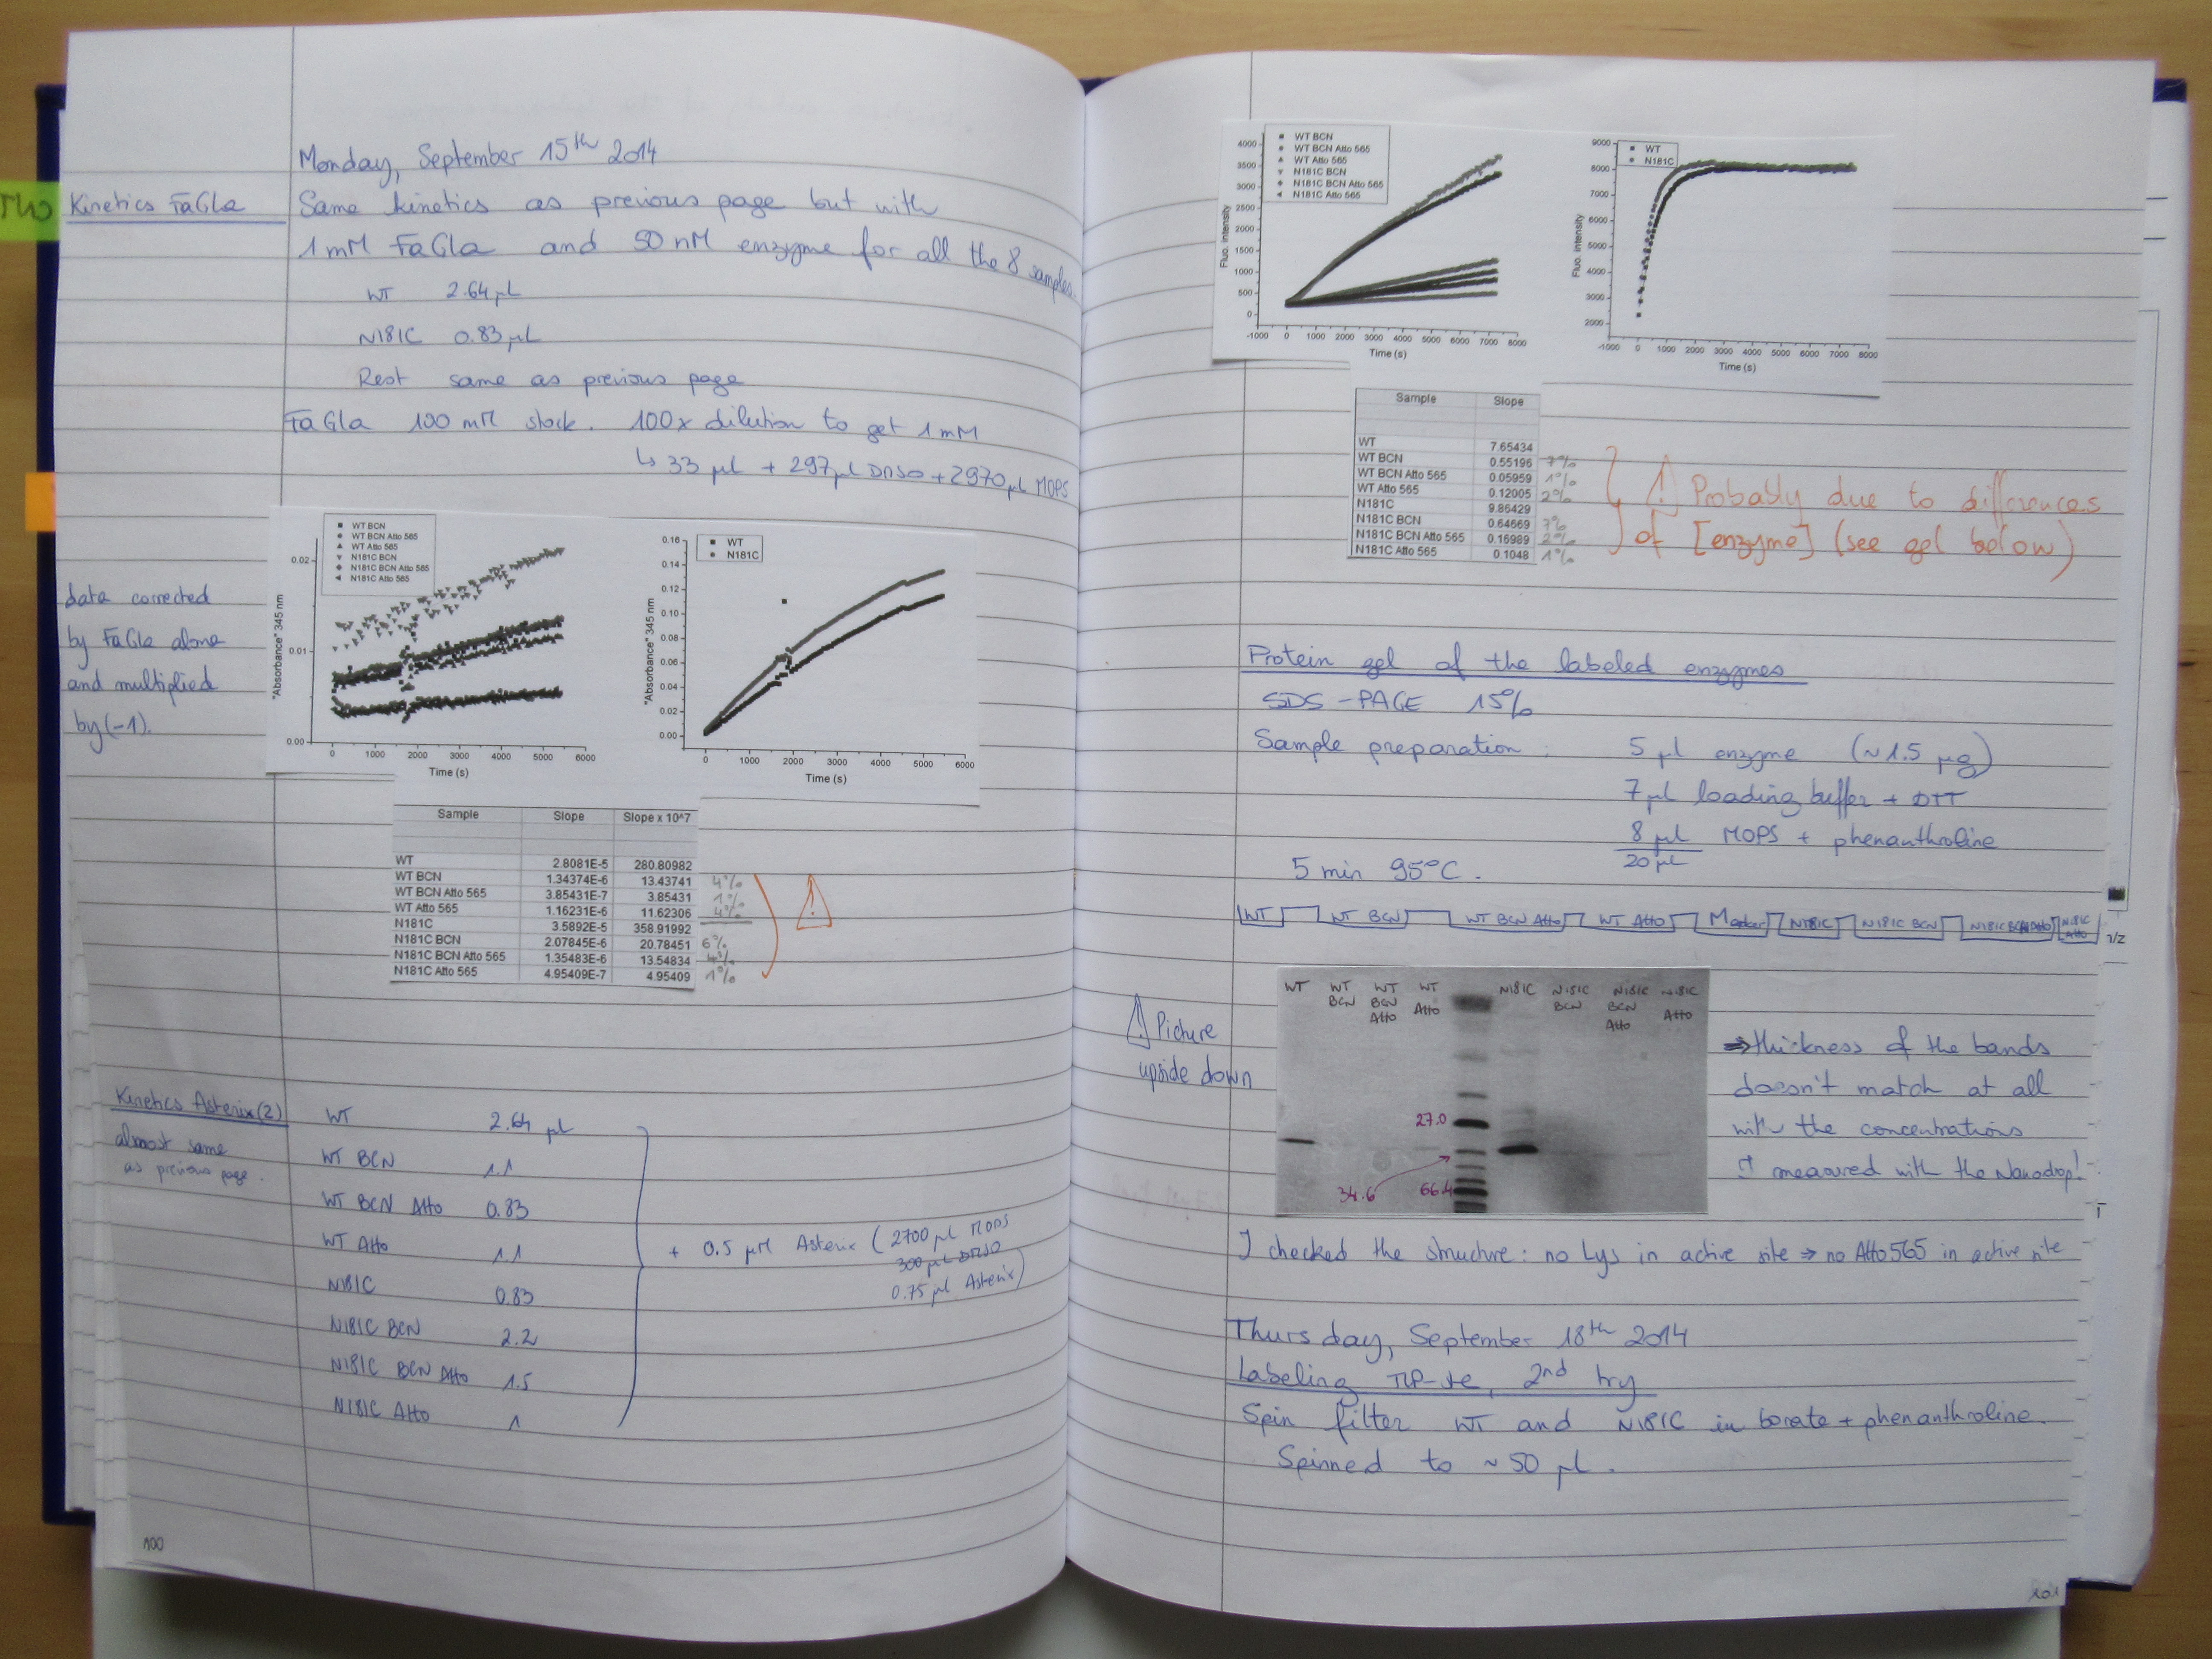 Monday, September 15th 2014
Kinetics FaGla
Same kinetics as previous page but with
1 mM FaGla and 50 nM enzyme for all the 8 samples.
WT 2.64 µl
N181C 0.83 µl
Rest same as previous page
FaGla 100 mM stock. 100x dilution to get 1 mM
↳ 33 µl + 297 µl DMSO + 2970 µl MOPS
data corrected
by FaGla alone
and multiplied
by (-1).
WT BCN
WT BCN Atto 565
WT Atto 565
N181C BCN
N181C BCN Atto 565
N181C Atto 565
"Absorbance" 345 nm
0.02
0.01
0.00
0 1000 2000 3000 4000 5000 6000
Time (s)
WT
N181C
"Absorbance" 345 nm
0.16
0.14
0.12
0.10
0.08
0.06
0.04
0.02
0.00
0 1000 2000 3000 4000 5000 6000
Time (s)
Sample Slope Slope x 10^7
WT 2.8081E-5 280.80982
WT BCN 1.34374E-6 13.43741 4%
WT BCN Atto 565 3.85431E-7 3.85431 1%
WT Atto 565 1.16231E-6 11.62306 4%
N181C 3.5892E-5 358.91992
N181C BCN 2.07845E-6 20.78451 6%
N181C BCN Atto 565 1.35483E-6 13.54834 4%
N181C Atto 565 4.95409E-7 4.95409 1%
!
Kinetics Asterix (2)
almost same
as previous page.
WT 2.64 µl
WT BCN 1.1
WT BCN Atto 0.83
WT Atto 1.1
N181C 0.83
N181C BCN 2.2
N181C BCN Atto 1.5
N181C Atto 1
+ 0.5 µM Asterix (2700 µl MOPS
300 µl DMSO
0.75 µl Asterix)
100
WT BCN
WT BCN Atto 565
WT Atto 565
N181C BCN
N181C BCN Atto 565
N181C Atto 565
Fluo. intensity
4000
3500
3000
2500
2000
1500
1000
500
0
-1000 0 1000 2000 3000 4000 5000 6000 7000 8000
Time (s)
WT
N181C
Fluo. intensity
9000
8000
7000
6000
5000
4000
3000
2000
-1000 0 1000 2000 3000 4000 5000 6000 7000 8000
Time (s)
Sample Slope
WT 7.65434
WT BCN 0.55196 7%
WT BCN Atto 565 0.05959 1%
WT Atto 565 0.12005 2%
N181C 9.86429
N181C BCN 0.64669 7%
N181C BCN Atto 565 0.16989 2%
N181C Atto 565 0.1048 1%
! Probably due to differences
of [enzyme] (see gel below)
Protein gel of the labeled enzymes
SDS-PAGE 15%
Sample preparation: 5 µl enzyme (~1.5 µg)
7 µl loading buffer + DTT
8 µl MOPS + phenanthroline
20 µl
5 min 95°C.
WT WT BCN WT BCN Atto WT Atto Marker N181C N181C BCN N181C BCN Atto N181C Atto
! Picture
upside down
WT WT BCN WT BCN Atto WT Atto N181C N181C BCN N181C BCN Atto N181C Atto
27.0
34.6
66.4
⇒ thickness of the bands
doesn't match at all
with the concentrations
I measured with the Nanodrop!
I checked the structure: no Lys in active site ⇒ no Atto 565 in active site
Thursday, September 18th 2014
Labeling TLP-ste, 2nd try
Spin filter WT and N181C in borate + phenanthroline.
Spinned to ~ 50 µl.
101